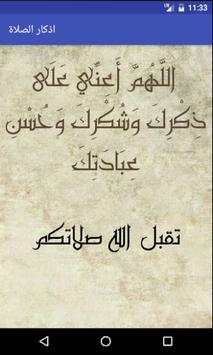 11:33
اذكار الصلاة
اللَّهُمَّ أَعنِّي عَلَى
ذِكْرِكَ وَشُكْرِكَ وَحُسْنِ
عِبَادَتِكَ
تقبل الله صلاتكم